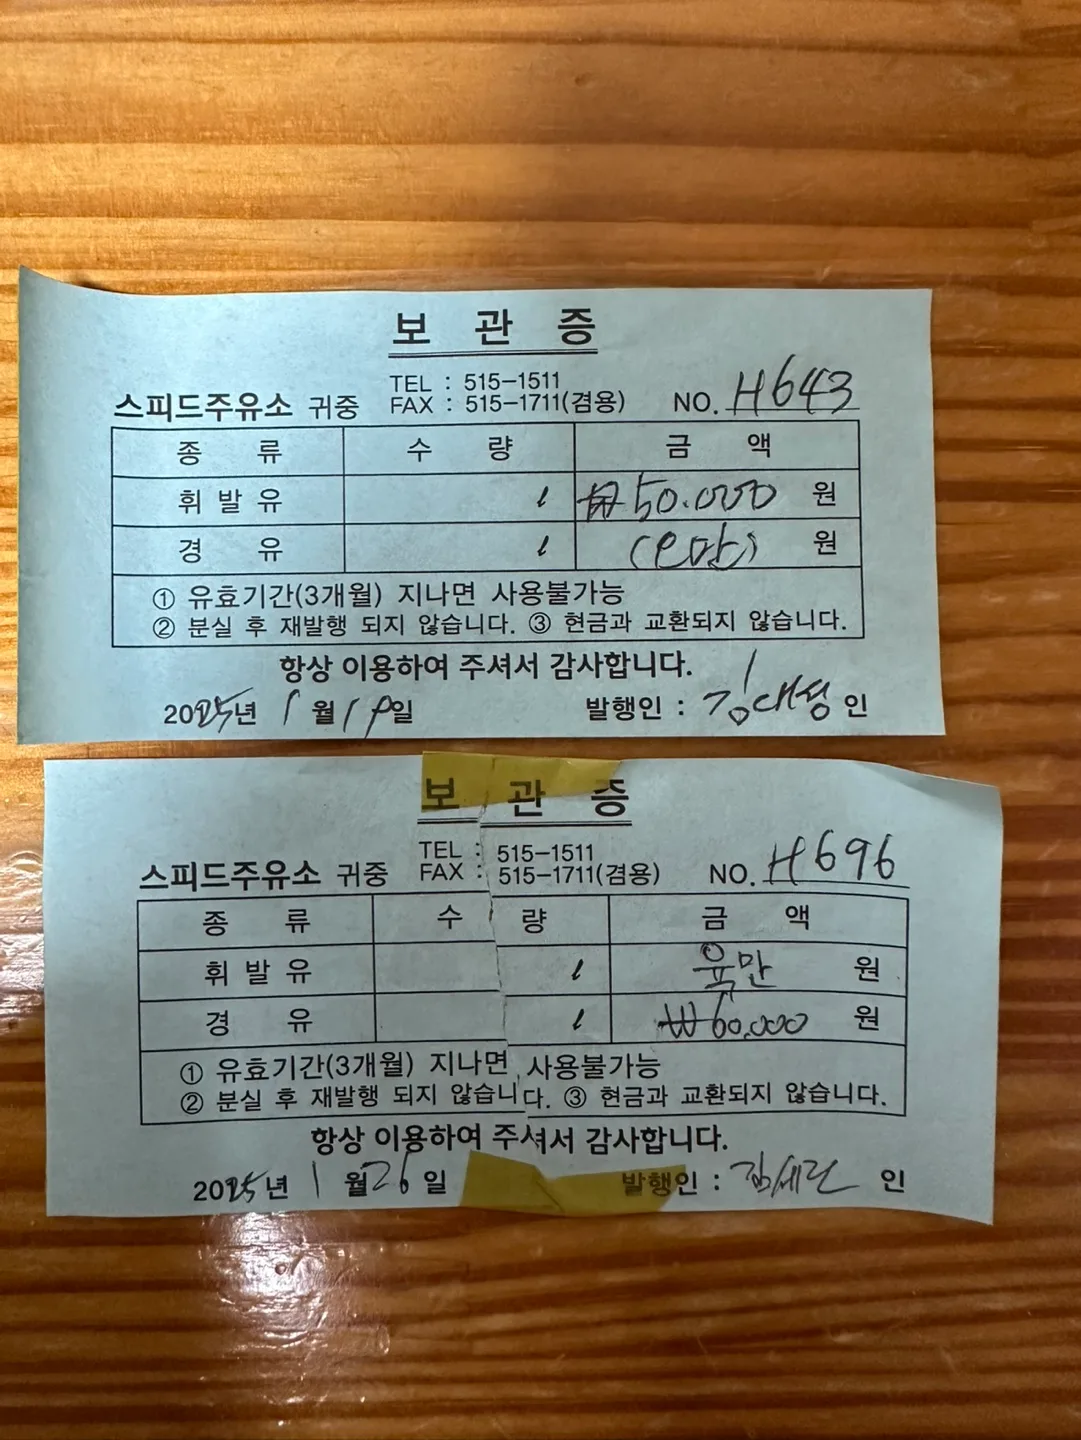 보 관 증
TEL : 515-1511
스피드주유소 귀중 FAX : 515-1711(겸용) NO. H643
종 류 수 량 금 액
휘 발 유 ℓ ₩50.000 원
경 유 ℓ (오만) 원
① 유효기간(3개월) 지나면 사용불가능
② 분실 후 재발행 되지 않습니다. ③ 현금과 교환되지 않습니다.
항상 이용하여 주셔서 감사합니다.
2025년 1월 19일 발행인 : 김대성 인
보 관 증
TEL : 515-1511
스피드주유소 귀중 FAX : 515-1711(겸용) NO. H696
종 류 수 량 금 액
휘 발 유 ℓ 육만 원
경 유 ℓ ₩60,000 원
① 유효기간(3개월) 지나면 사용불가능
② 분실 후 재발행 되지 않습니다. ③ 현금과 교환되지 않습니다.
항상 이용하여 주셔서 감사합니다.
2025년 1월 26일 발행인 : 인